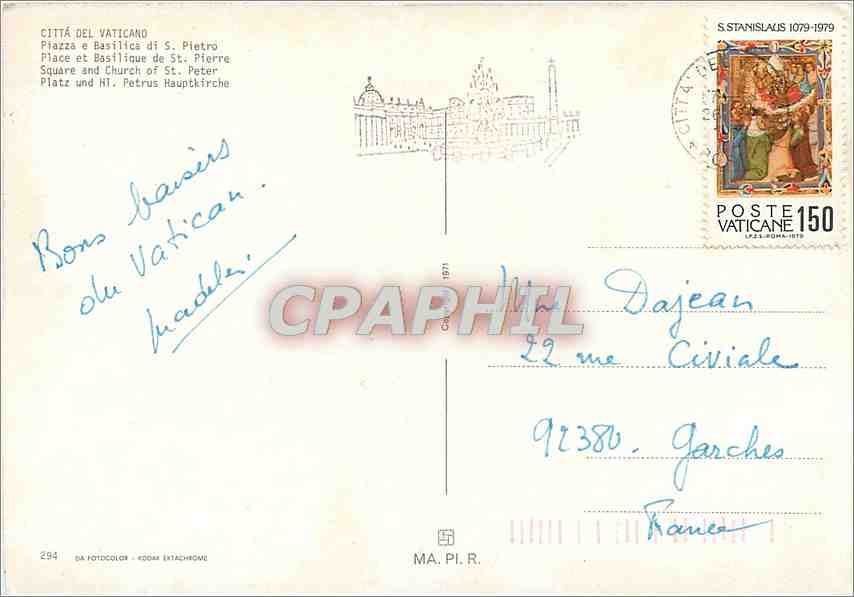 CITTÁ DEL VATICANO
Piazza e Basilica di S. Pietro
Place et Basilique de St. Pierre
Square and Church of St. Peter
Platz und Hl. Petrus Hauptkirche
S. STANISLAUS 1079-1979
CITTÀ DE
POSTE
VATICANE 150
I.P.Z.S.-ROMA-1979
Bons baisers
du Vatican.
Copyright 1971
CPAPHIL
Mme Dajean
22 rue Civiale
92380. Garches
France
294 DA FOTOCOLOR - KODAK EKTACHROME
MA. PI. R.